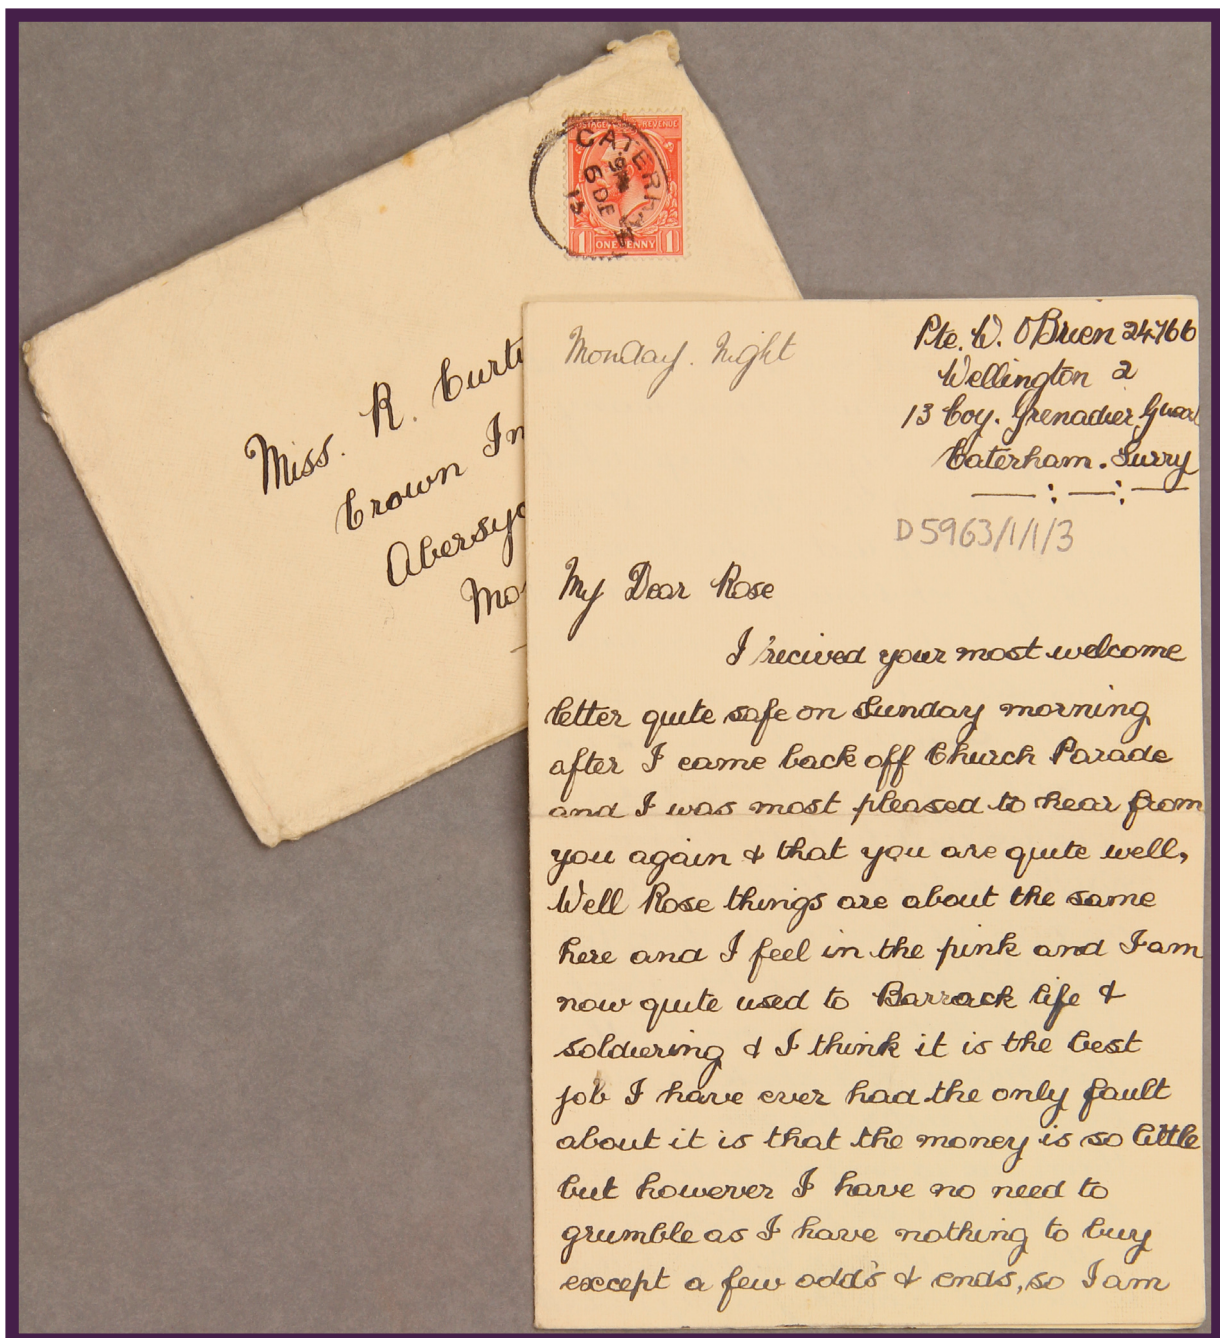 POSTAGE REVENUE
CATERHAM
6 DE
15
1 ONE PENNY 1
Miss. R. Curt
Crown In
Abersy
Mo
Monday. Night
Pte. W. O'Brien 24766
Wellington 2
13 Coy. Grenadier Guar
Caterham. Surry
D5963/1/1/3
My Dear Rose
I recived your most welcome
letter quite safe on Sunday morning
after I came back off Church Parade
and I was most pleased to hear from
you again & that you are quite well,
Well Rose things are about the same
here and I feel in the pink and I am
now quite used to Barrack life &
soldiering & I think it is the best
job I have ever had the only fault
about it is that the money is so little
but however I have no need to
grumble as I have nothing to buy
except a few odd's & ends, so I am